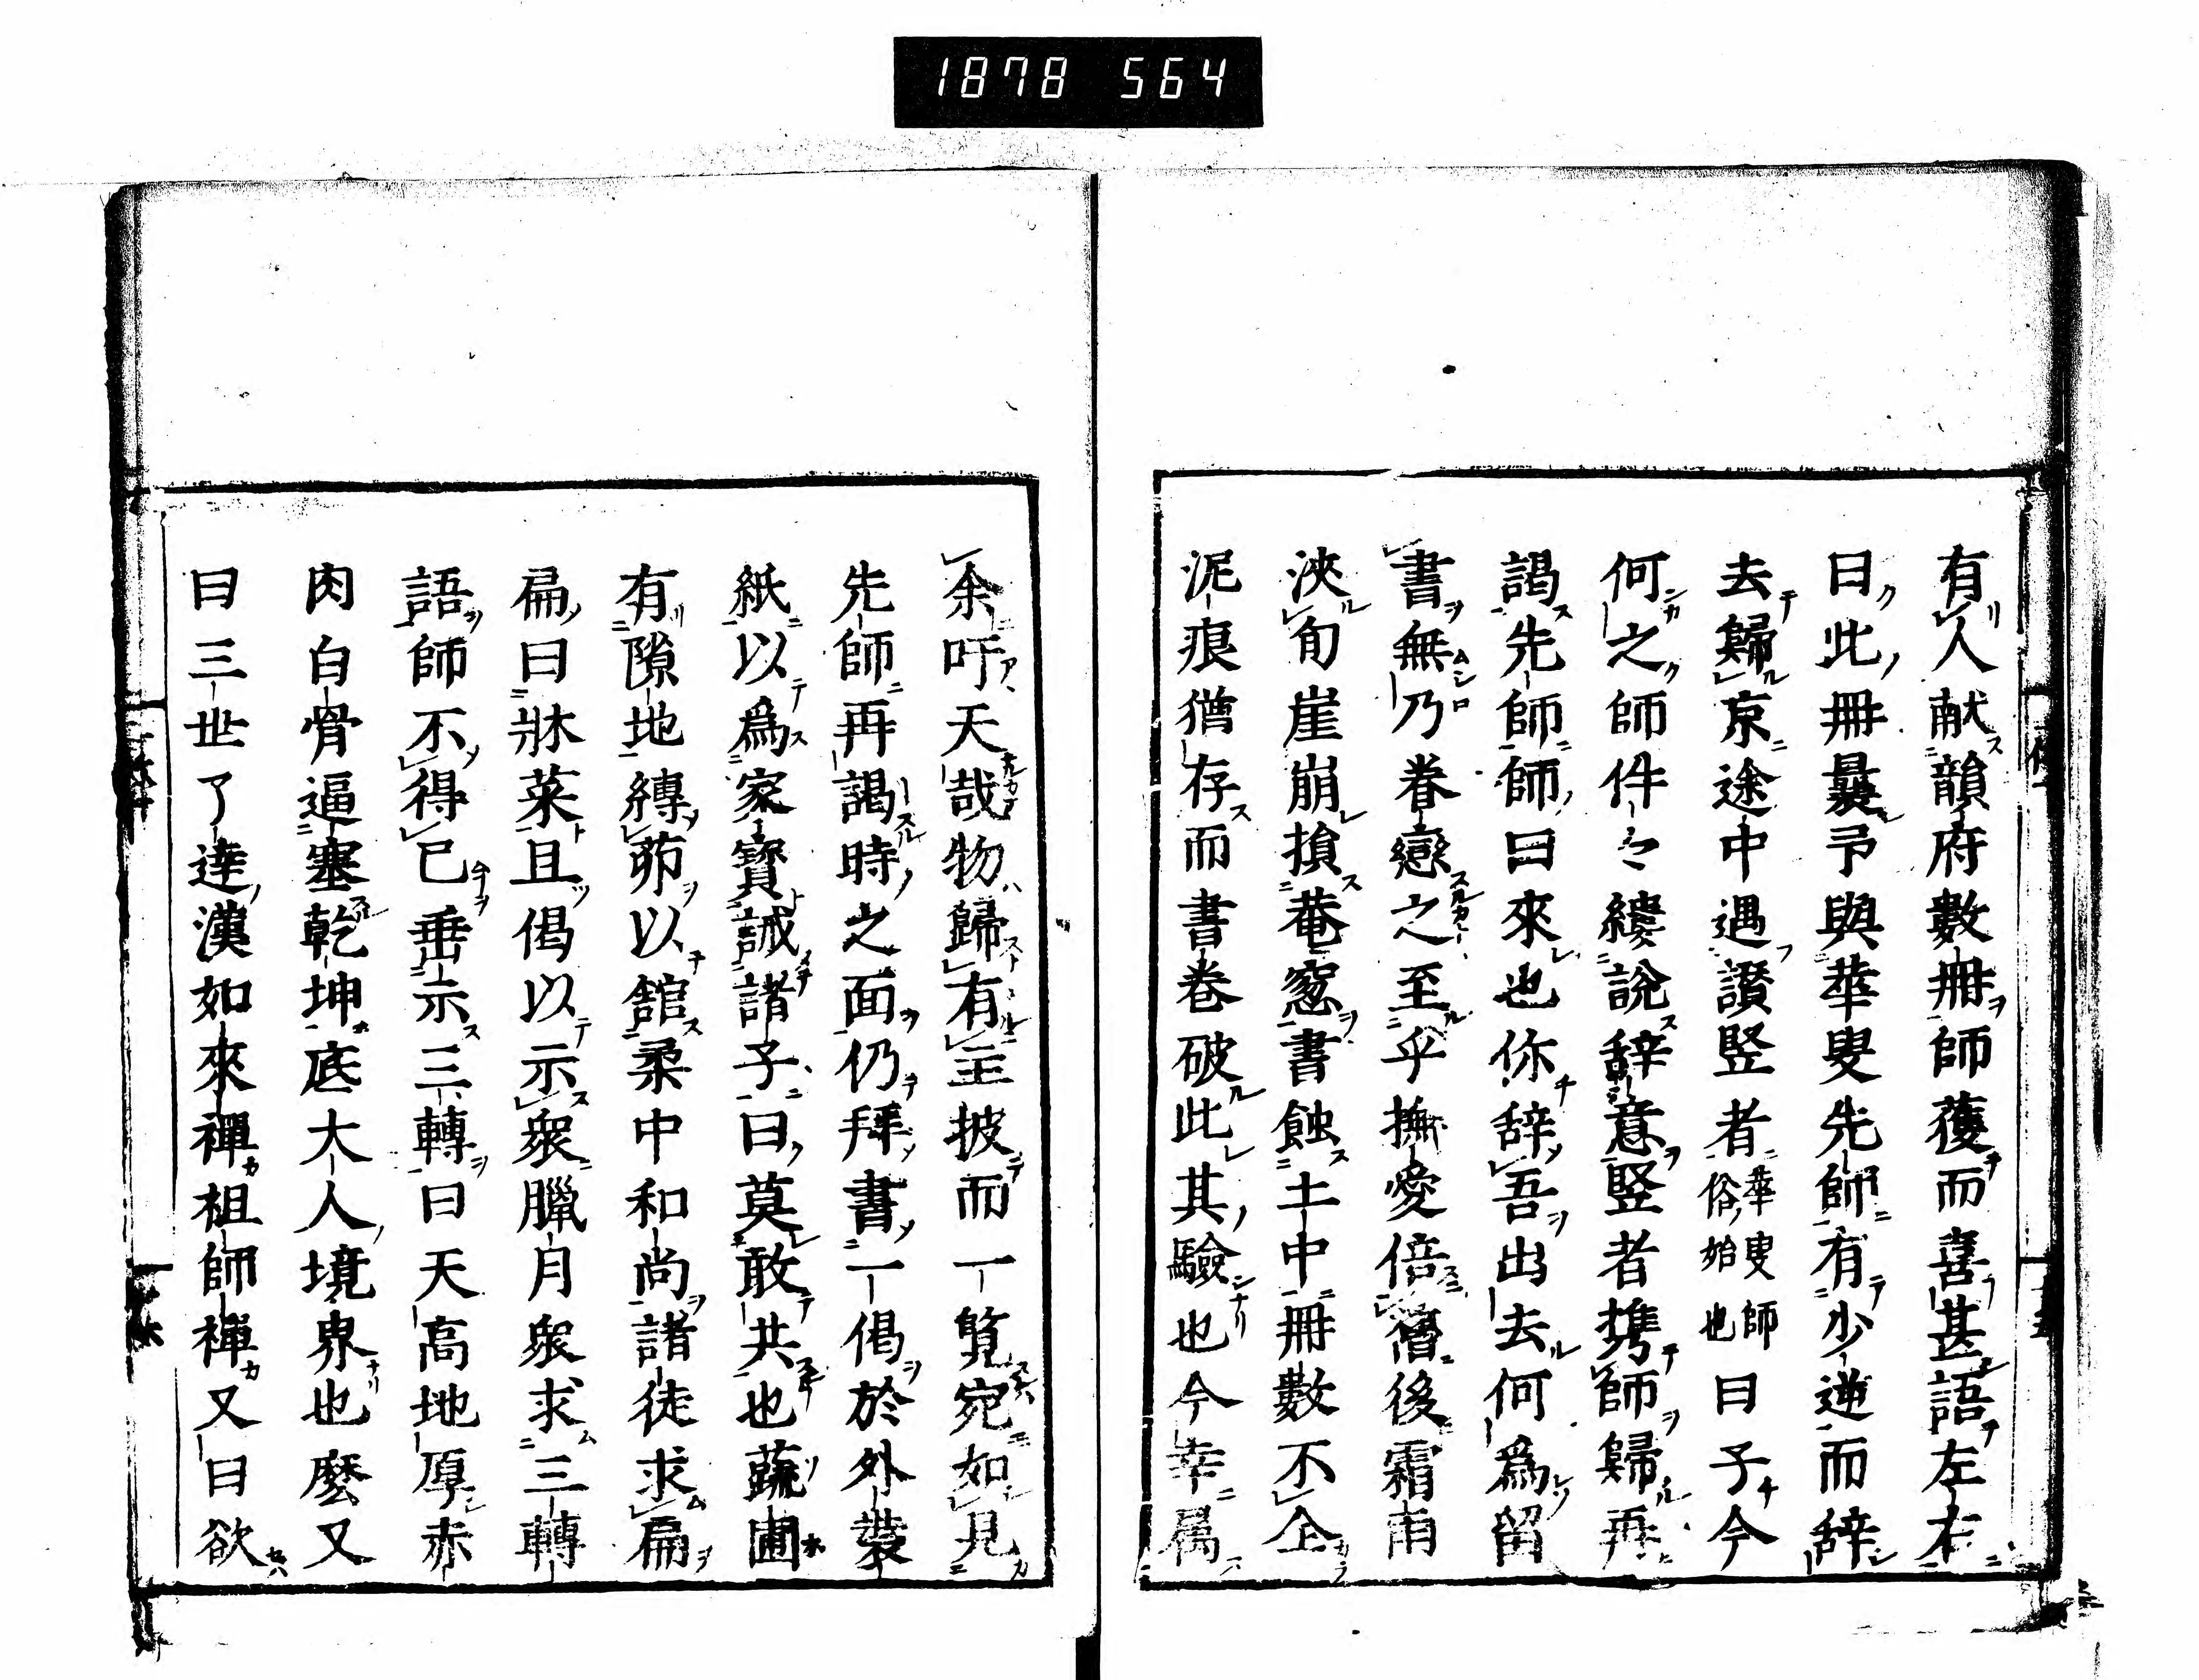 1878 564
有人献韻府數冊師獲而喜甚語左右
曰此冊曩予與華叟先師有少逆而辞
去歸京途中遇讚竪者華叟師俗始也曰子今
何之師件々縷說辞意竪者携師歸再
謁先師師曰來也你辞吾出去何爲留
書無乃眷戀之至乎撫愛倍舊後霜雨
浹旬崖崩損菴窓書蝕土中冊數不全
泥痕僧存而書卷破此其驗也今幸属
余吁天哉物歸有主披而一覧宛如見
先師再謁時之面仍拜書一偈於外褁
紙以爲家寶誡諸子曰莫敢共也蔬圃
有隙地縳茆以館柔中和尚諸徒求扁
扁曰牀菜且偈以示衆臘月衆求三轉
語師不得已垂示三轉曰天高地厚赤
肉白骨逼塞乾坤底大人境界也麼又
曰三世了達漢如來禪祖師禪又曰欲